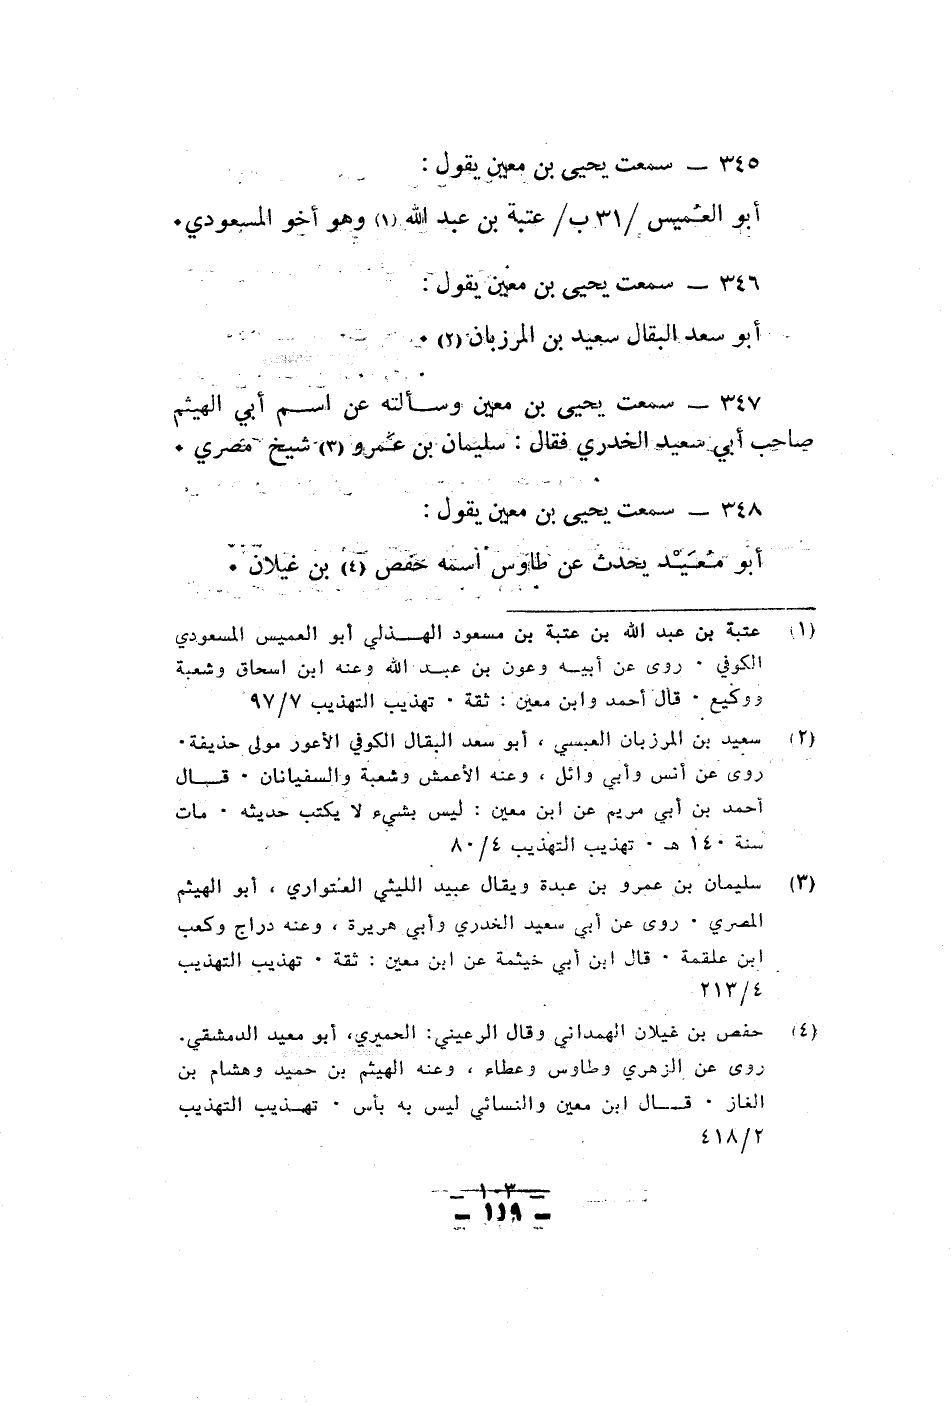 ٣٤٥ ــ سمعت يحيى بن معين يقول :
أبو العُميس /٣١ ب/ عتبة بن عبد الله (١) وهو أخو المسعودي٠
٣٤٦ ــ سمعت يحيى بن معين يقول :
أبو سعد البقال سعيد بن المرزبان (٢) ٠
٣٤٧ ــ سمعت يحيى بن معين وسـألته عن اسم أبي الهيثم
صاحب أبي سعيد الخدري فقال : سليمان بن عمرو (٣) شيخ مصري ٠
٣٤٨ ــ سمعت يحيى بن معين يقول :
أبو مُعَيْد يحدث عن طاوس اسمه حفص (٤) بن غيلان ٠
(١) عتبة بن عبد الله بن عتبة بن مسعود الهـذلي أبو العميس المسعودي
الكوفي ٠ روى عن أبيـه وعون بن عبـد الله وعنه ابن اسحاق وشعبة
ووكيع ٠ قال أحمد وابن معين : ثقة ٠ تهذيب التهذيب ٩٧/٧
(٢) سعيد بن المرزبان العبسي ، أبو سعد البقال الكوفي الأعور مولى حذيفة٠
روى عن أنس وأبي وائل ، وعنه الأعمش وشعبة والسفيانان ٠ قـال
أحمد بن أبي مريم عن ابن معين : ليس بشيء لا يكتب حديثه ٠ مات
سنة ١٤٠ هـ ٠ تهذيب التهذيب ٨٠/٤
(٣) سليمان بن عمرو بن عبدة ويقال عبيد الليثي العُتواري ، أبو الهيثم
المصري ٠ روى عن أبي سعيد الخدري وأبي هريرة ، وعنه دراج وكعب
ابن علقمة ٠ قال ابن أبي خيثمة عن ابن معين : ثقة ٠ تهذيب التهذيب
٢١٣/٤
(٤) حفص بن غيلان الهمداني وقال الرعيني: الحميري، أبو معيد الدمشقي.
روى عن الزهري وطاوس وعطاء ، وعنه الهيثم بن حميد وهشام بن
الغاز ٠ قـال ابن معين والنسائي ليس به بأس ٠ تهـذيب التهذيب
٤١٨/٢
ــ ١٠٣ ــ
ــ ١١٩ ــ